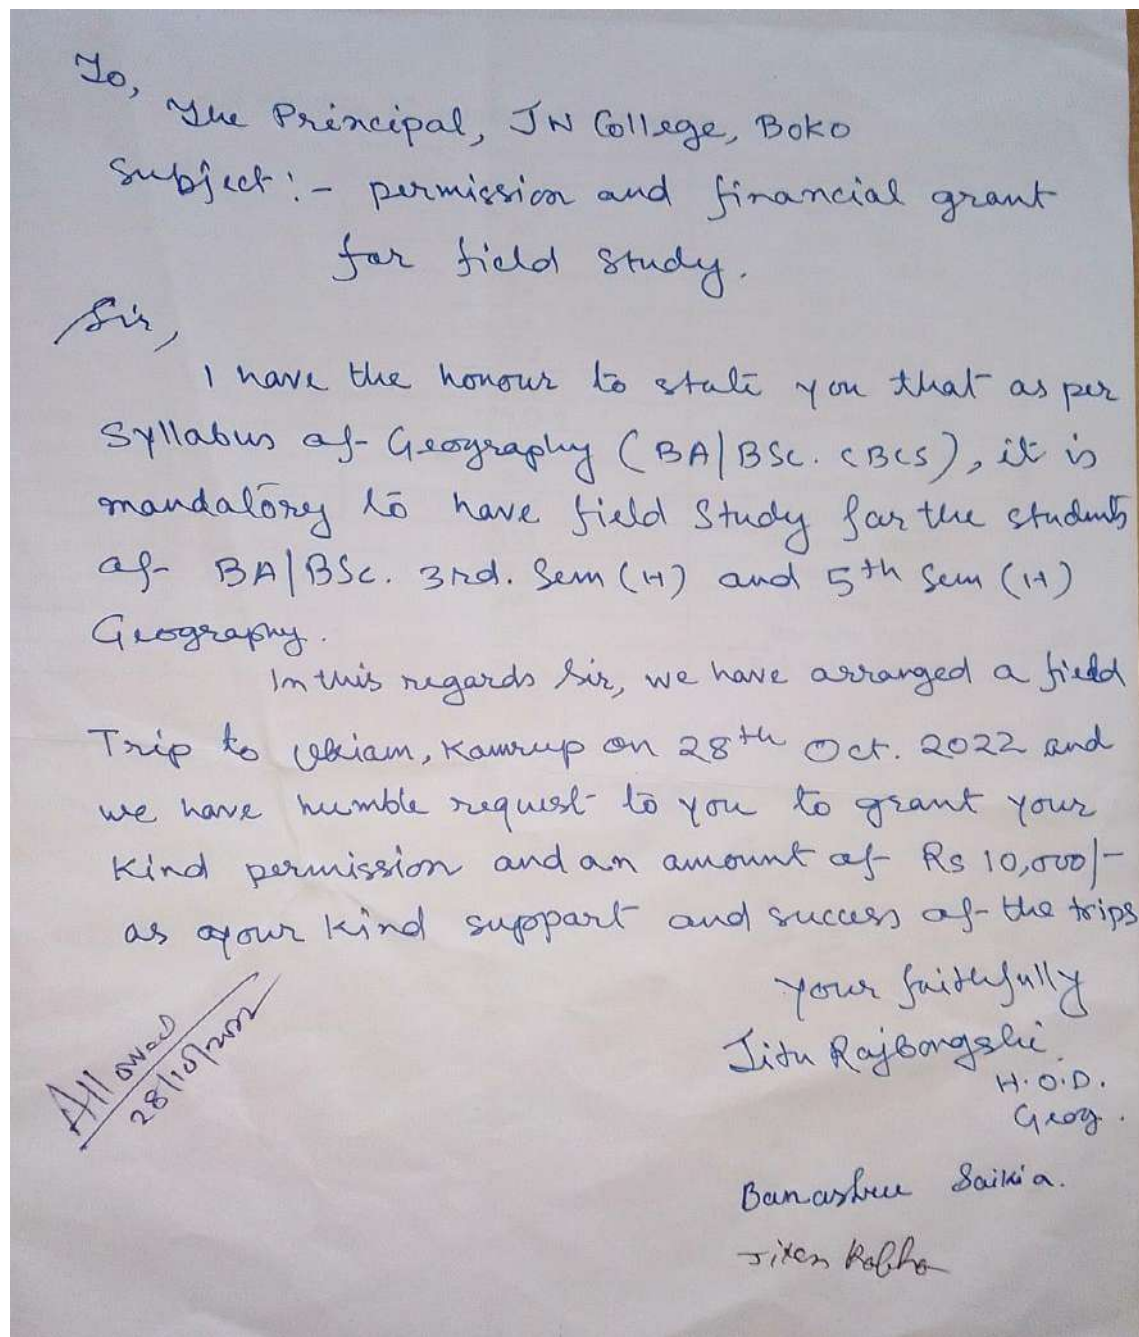 To,
The Principal, JN College, Boko
Subject:- permission and financial grant
for field study.
Sir,
I have the honour to state you that as per
Syllabus of Geography (BA/BSc. CBCS), it is
mandatory to have field Study for the students
of BA/BSc. 3rd. Sem (H) and 5th Sem (H)
Geography.
In this regards Sir, we have arranged a field
Trip to Ukiam, Kamrup on 28th Oct. 2022 and
we have humble request to you to grant your
Kind permission and an amount of Rs 10,000/-
as your kind support and success of the trips
your faithfully
Jitu Rajbongshi
H.O.D.
Geog.
Allowed
28/10/2022
Banashree Saikia.
Jiten Rabha